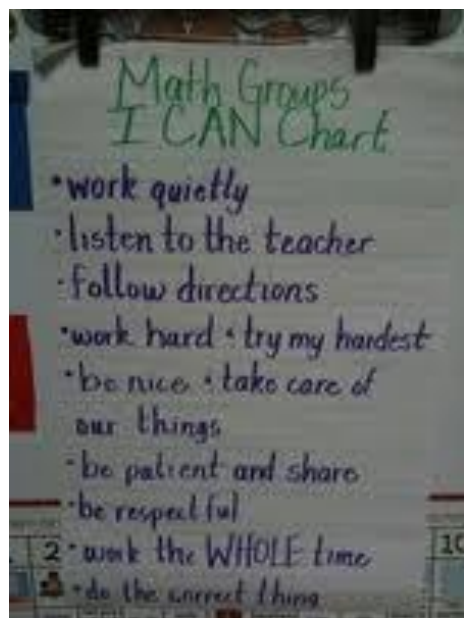 Math Groups
I CAN Chart
• work quietly
• listen to the teacher
• follow directions
• work hard & try my hardest
• be nice & take care of
our things
• be patient and share
• be respectful
• work the WHOLE time
• do the correct thing
2
10